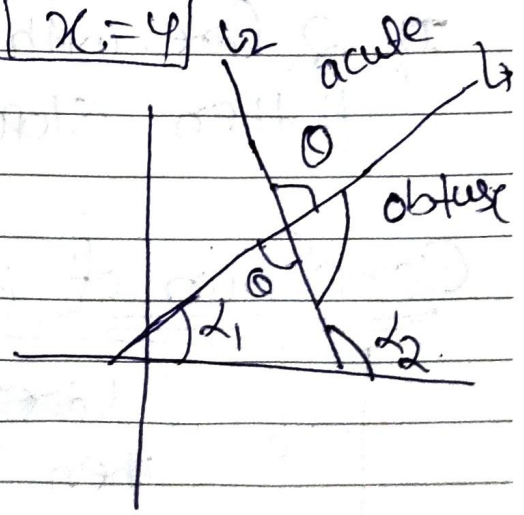 x = 4
L2
acute
L1
θ
obtuse
θ
α1
α2